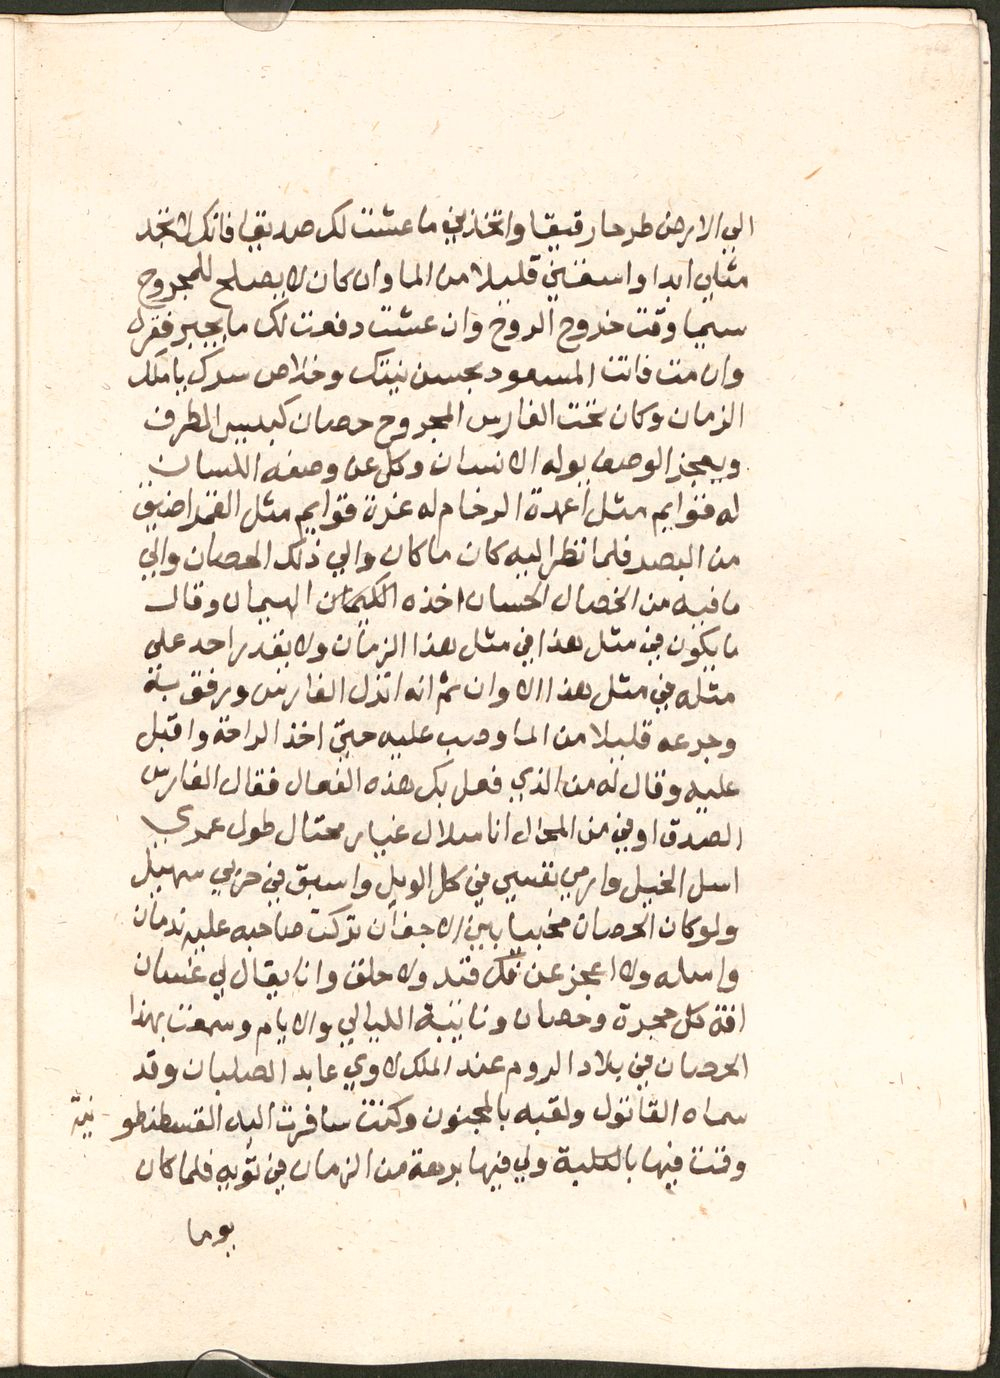 الي الارض طرحا رقيقا واتخذني ما عشت لك صديقا فانك لا تجد
مثلي ابدا واسقني قليلا من الما وان كان لا يصلح للمجروح
سيما وقت خروج الروح وان عشت دفعت لك ما يجبر فقرك
وان مت فانت المسعود بحسن نيتك وخلاص سرك يا ملك
الزمان وكان تحت الفارس المجروح حصان كبيس المطرف
ويعجز الوصف بوله الانسان وكل عن وصفه اللسان
له قوايم مثل اعمدة الرخام له غرة قوايم مثل القمر اضيق
من البصر فلما نظر اليه كان ما كان والي ذلك الحصان والي
ما فيه من الخصال الحسان اخذه الهيمان وقال
ما يكون في مثل هذا في مثل هذا الزمان ولا يقدر احد علي
مثله في مثل هذا الاوان ثم انه انزل الفارس ورفق به
وجرعه قليلا من الما وصب عليه حتي اخذ الراحة واقبل
عليه وقال له من الذي فعل بك هذه الفعال فقال الفارس
الصدق اوفي من المحال انا سلال غيار محتال طول عمري
اسل الخيل وارمي نفسي في كل الويل واسبق في حربي سهيل
ولو كان الحصان مخبيا بين الاجفان تركت صاحبه عليه ندمان
واسله ولا اعجز عن فك قيد ولا حلق وانا يقال لي غسان
افة كل حجرة وحصان ونايبة الليالي والايام وسمعت بهذا
الحصان في بلاد الروم عند الملك لاوي عابد الصلبان وقد
سماه القاتول ولقبه بالمجنون وكنت سافرت اليه القسطنطو نية
وقت فيها بالعلبة ولي فيها برهة من الزمان في توبه فلما كان
يوما